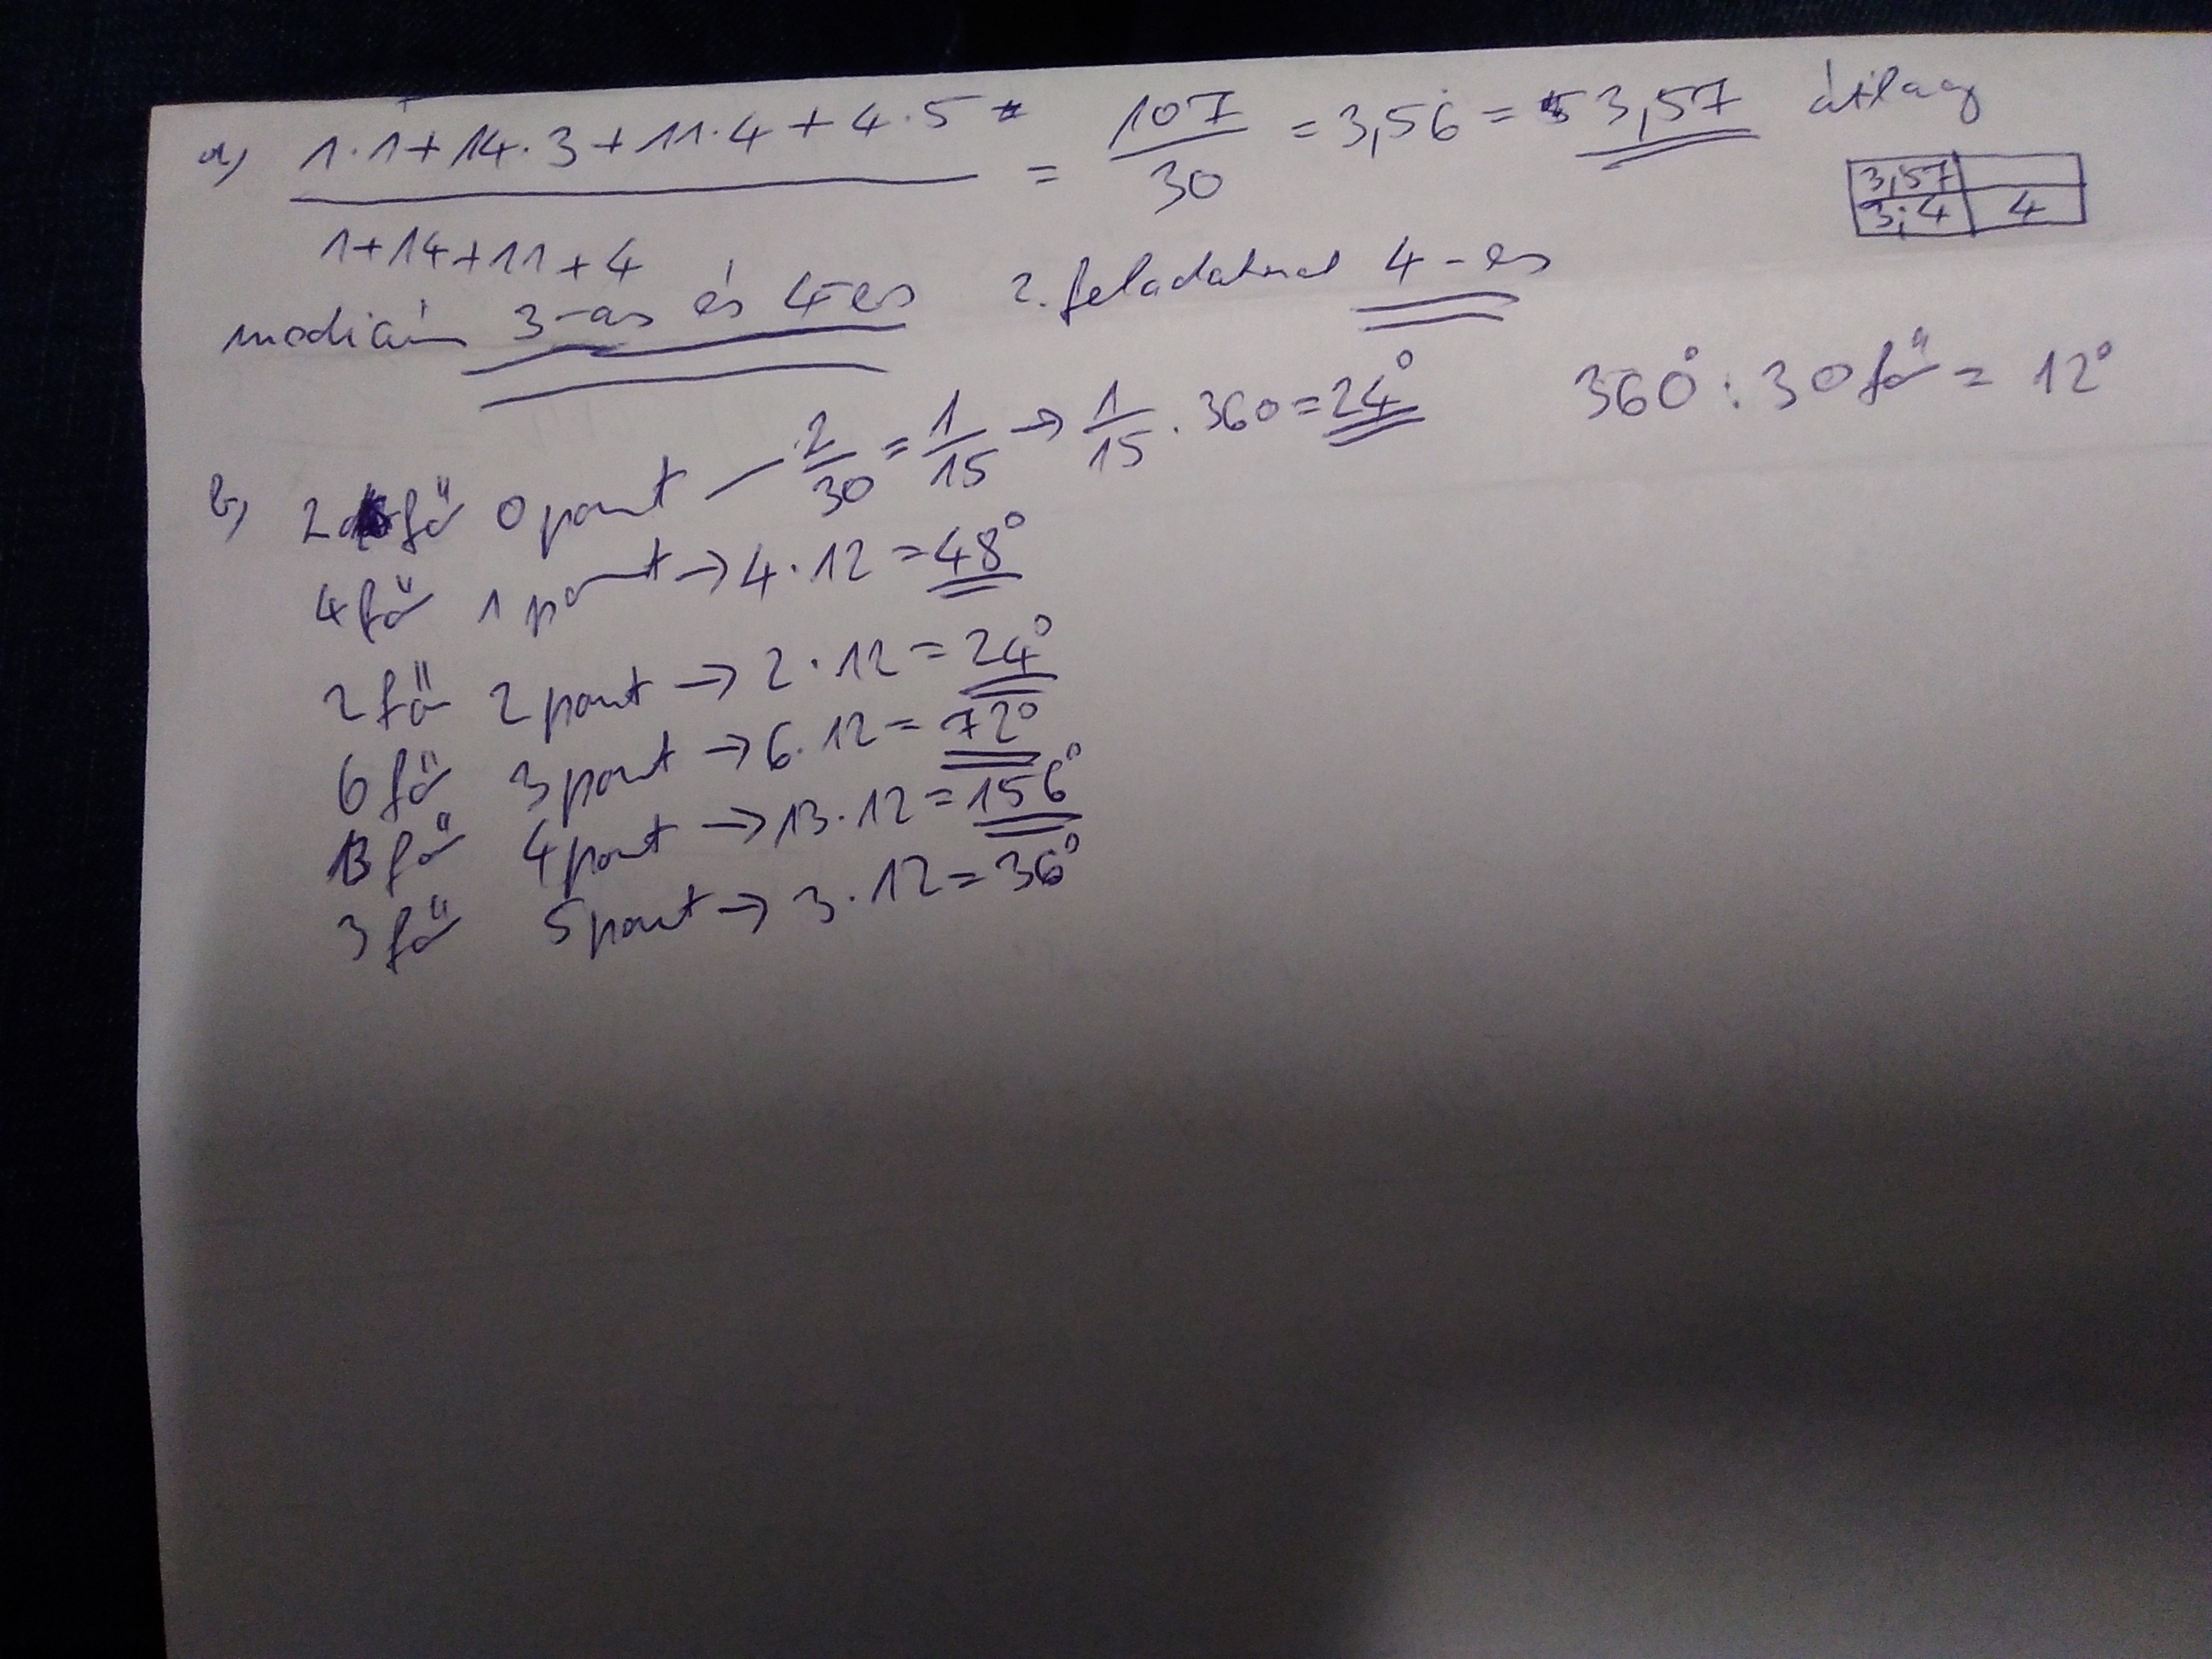 a, 1·1+14·3+11·4+4·5 = 107 = 3,56̇ = 3,57 átlag
1+14+11+4 30
3,57
3;4 4
medián 3-as és 4-es 2. feladatnál 4-es
360° : 30 fő = 12°
b, 2 fő 0 pont — 2/30 = 1/15 → 1/15 · 360 = 24°
4 fő 1 pont → 4·12 = 48°
2 fő 2 pont → 2·12 = 24°
6 fő 3 pont → 6·12 = 72°
13 fő 4 pont → 13·12 = 156°
3 fő 5 pont → 3·12 = 36°